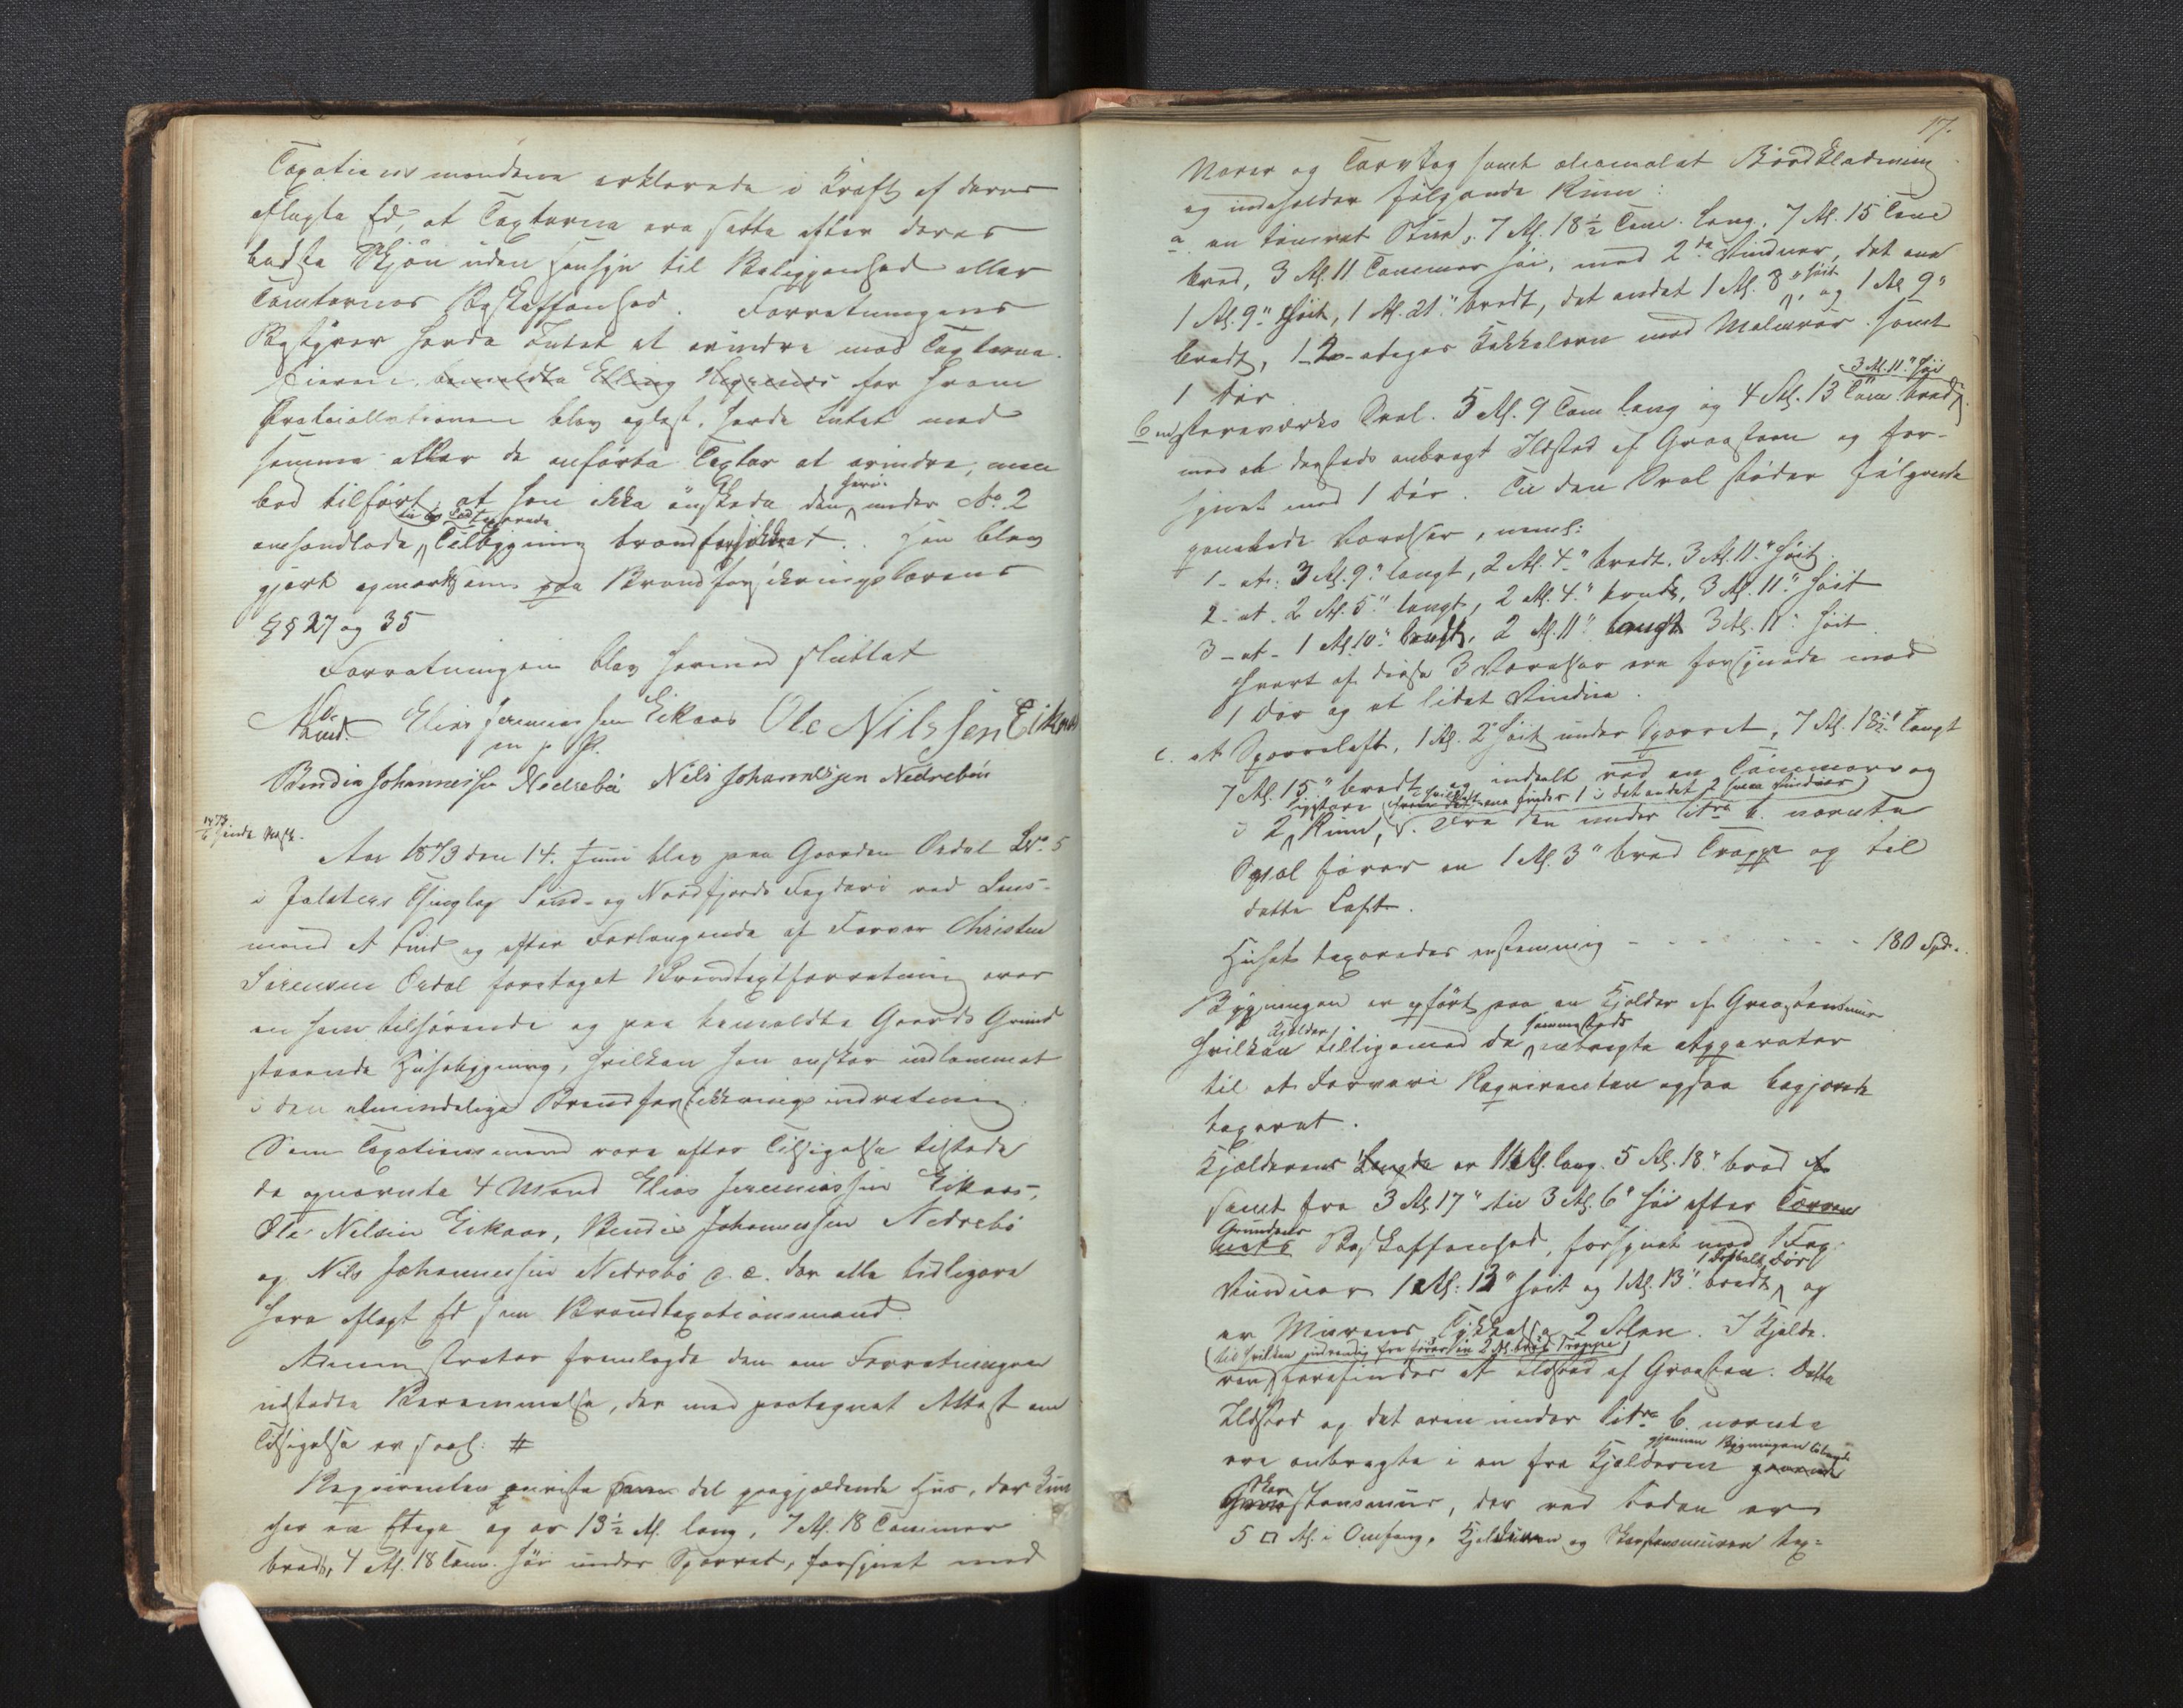 Taxationsmændene erklærede i Kraft af deres
aflagte Ed, at Taxterne ere satte efter deres
bedste Skjøn uden Hensyn til Beliggenhed eller
Tomternes Beskaffenhed. Forretningens
Bestyrer havde Intet at erindre mod Taxterne.
Eieren, bemeldte Elling for hvem
Protocollationen blev oplæst, havde Intet mod
samme eller de anførte Taxter at erindre, men
bad tilført, at han ikke ønskede den heri under No. 2
omhandlede Tilbygning brandforsikkret. Han blev
gjort opmærksom paa Brandforsikringslovens
§§ 27 og 35
Forretningen blev hermed sluttet
Lind. Elias Jeremiassen Eikaas Ole Nilssen Eikaas
m p P.
Bendix Johannessen Nedrebø Nels Johannessen Nedrebøe
Aar 1873 den 14. Juni blev paa Gaarden Ordal Lno. 5
i Jølsters Thinglag Sønd- og Nordfjords Fogderi ved Lens-
mand A Lind og efter Forlangende af Farver Christen
Sørensen Ordal foretaget Brandtaxtforretning over
en ham tilhørende og paa bemeldte Gaards Grund
staaende Husebygning, hvilken han ønsker indlemmet
i den almindelige Brandforsikkringsindretning.
Som Taxationsmænd vare efter Tilsigelse tilstede
de opnævnte 4 Mænd Elias Jeremiassen Eikaas,
Ole Nilsen Eikaas, Bendix Johannessen Nedrebø
og Nils Johannessen Nedrebø, der alle tidligere
have aflagt Ed som Brandtaxationsmænd.
Administrator fremlagde den om Forretningen
udstedte Berammelse, der med paategnet Attest om
Tilsigelse er saal: #
Reqvirenten paaviste det paagjældende Hus, der kun
har en Etage og er 13½ Al. lang, 7 Al. 18 Tommer
bredt, 4 Al. 18 Tom. høi under Sparret, forsynet med
17.
Næver og Torvtag samt oliemalet Bordklædning
og indeholder følgende Rum:
a en tømret Stue, 7 Al. 18½ Tom. lang, 7 Al. 15 Tom
bred, 3 Al. 11 Tommer høi, med 2de Vinduer, det ene
1 Al. 9" høit, 1 Al. 21" bredt, det andet 1 Al. 8" høit, og 1 Al 9"
bredt, 1 2-etages Kakkelovn med Malmrør samt
1 Dør
3 Al. 11" høi
b en Stavværks Sval. 5 Al. 9 Tom lang og 4 Al. 13 Tom bred,
med et dersteds anbragt Ildsted af Graasteen og for-
synet med 1 Dør. Til den Sval støder følgende
panelede Værelser, neml:
1 - et: 3 Al. 9" langt, 2 Al. 4" bredt, 3 Al. 11" høit
2 - et 2 Al. 5" langt, 2 Al. 4" bredt, 3 Al. 11" høit
3 - et - 1 Al. 10" bredt, 2 Al. 11" langt 3 Al. 11" høit
Hvert af disse 3 Værelser ere forsynede med
1 Dør og et lidet Vindue.
c. et Sperreloft, 1 Al. 2" høit under Sparret, 7 Al. 18½" langt
7 Al. 15" bredt og inddelt ved en Tømmervæg
i 2 Rum, Fra den under Litra b. nævnte
Sval fører en 1 Al. 3" bred Trappe op til
dette Loft.
Huset taxeredes enstemmig - - - - - - - 180 Spd.
Bygningen er opført paa en Kjelder af Graasteensmur
hvilken Kjelder tilligemed de sammesteds anbragte Apparater
til et Farveri Reqvirenten ogsaa begjærede
taxeret.
Kjælderens Længde er 11 Al. lang. 5 Al. 18" bred
samt fra 3 Al. 17" til 3 Al. 6" høi efter
Grundens Beskaffenhed, forsynet med 1 Fag
Vinduer 1 Al. 13" høit og 1 Al. 13" bredt, 1 dobbelt Dør og
er Murens Tykkelse 2 Alen. I Kjelde-
(til hvilken indvendig fra fører en 2 Al. bred Trappe)
ren forefindes et Ildsted af Graasten. Dette
Ildsted og det oven under Litra b nævnte
ere anbragte i en fra Kjelderen gjennem Bygningen
Skorstensmur, der ved Foden er
5 □ Al. i Omfang. Kjelderen og Skorstensmuren tax-